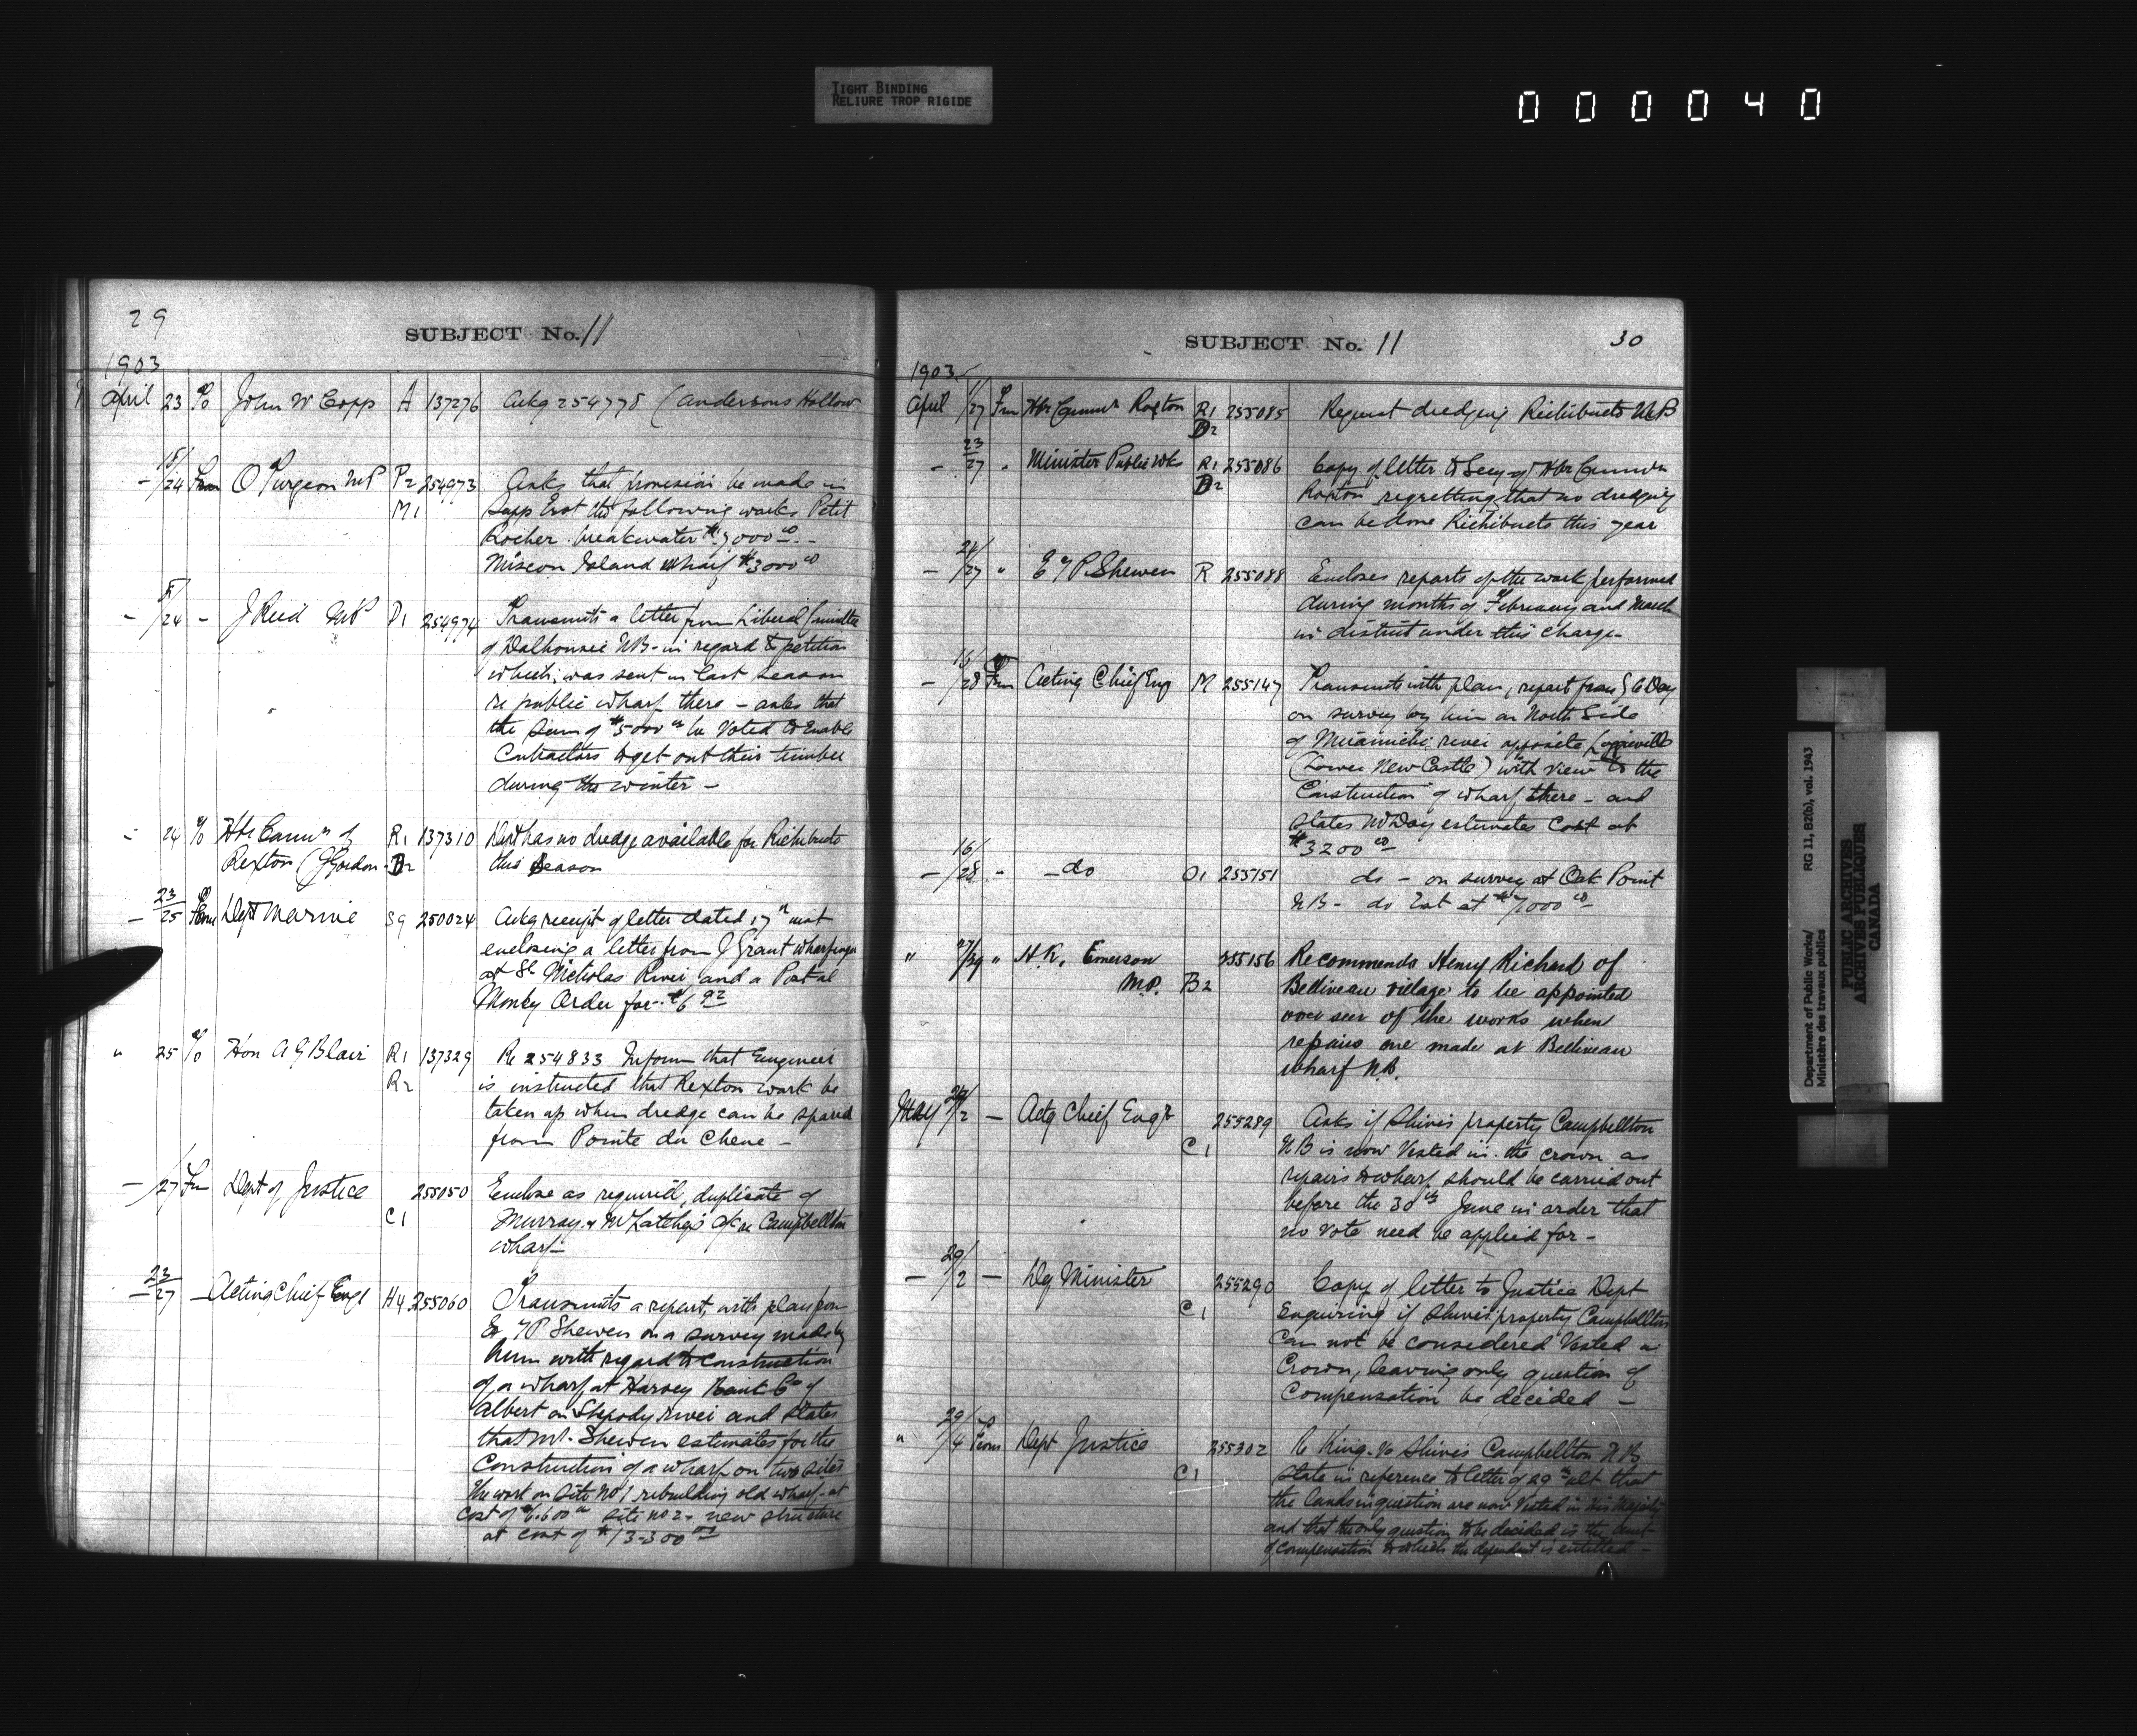 TIGHT BINDING
RELIURE TROP RIGIDE
000040
29
SUBJECT No. 11
1903
April 23 To John W Copp A 137276 Ackg 254778 (Andersons Hollow
15/24 From O Turgeon MP P2 254973 Asks that provision be made in
M1 Supp Est the following works Petit
Rocher breakwater $7000.00 -
Miscou Island wharf $3000.00
- 8/24 - J Reid MP D1 254974 Transmits a letter from Liberal Committee
of Dalhousie NB - in regard to petition
which was sent in last season
re public wharf there - asks that
the sum of $5000.00 be voted to enable
Contractors to get out their timber
during the winter -
- 24 To Hbr Commrs of R1 137310 Dept has no dredge available for Richibucto
Rexton (J Gordon - D2 this season
- 23/25 From Dept Marine S9 250024 Ackg receipt of letter dated 17th inst
enclosing a letter from J Grant wharfinger
at St Nicholas River and a Postal
Money Order for $6.92
" 25 To Hon A G Blair R1 137329 Re 254833 Inform that Engineer
R2 is instructed that Rexton work be
taken up when dredge can be spared
from Pointe du Chene -
- /27 Fm Dept of Justice 255050 Enclose as required, duplicate of
C1 Murray & McLatchey's a/c re Campbellton
wharf -
23/27 - Acting Chief Engr H4 255060 Transmits a report, with plan from
E T P Shewen on a survey made by
him with regard to construction
of a wharf at Harvey Bank Co of
Albert on Shepody river and states
that Mr. Shewen estimates for the
Construction of a wharf on two sites
the work on site No 1 rebuilding old wharf - at
cost of $6.600.00 site no 2 - new structure
at cost of $13-300.00
SUBJECT No. 11
30
1903
April 11/27 Fm Hbr Commrs Rexton R1 255085 Request dredging Richibucto N.B
D2
- 23/27 " Minister Public Wks R1 255086 Copy of letter to Secy of Hbr Commrs
D2 Rexton regretting that no dredging
can be done Richibucto this year
- 24/27 " E T P Shewen R 255088 Encloses reports of the work performed
during months of February and March
in district under his charge -
- 16/28 Fm Acting Chief Eng M 255147 Transmits with plan, report from G C Day
on survey by him on North Side
of Miramichi river opposite Loggieville
(Lower New Castle) with view to the
Construction of wharf there - and
states Mr Day estimates cost at
$3200.00
- 16/28 " - do O1 255151 do - on survey at Oak Point
N B - do Est at $7,000.00
" 27/29 " H. R. Emerson 255156 Recommends Henry Richard of
M.P. B2 Belliveau village to be appointed
overseer of the works when
repairs are made at Belliveau
wharf N.B.
May 29/2 - Actg Chief Engr 255289 Asks if Shives property Campbellton
C1 N B is now Vested in the crown as
repairs to wharf should be carried out
before the 30th June in order that
no vote need be applied for -
- 29/2 - Dy Minister 255290 Copy of letter to Justice Dept
C1 Enquiring if Shives' property Campbellton
can not be considered Vested in
Crown, leaving only question of
Compensation be decided -
" 29/4 From Dept Justice 255302 Re King vs Shives Campbellton N B
C1 State in reference to letter of 29th ult that
the lands in question are now Vested in His Majesty
and that the only question to be decided is the amt
of compensation to which the dependent is entitled -
Department of Public Works/ RG 11, B2(b), vol. 1943
Ministère des travaux publics
PUBLIC ARCHIVES
ARCHIVES PUBLIQUES
CANADA